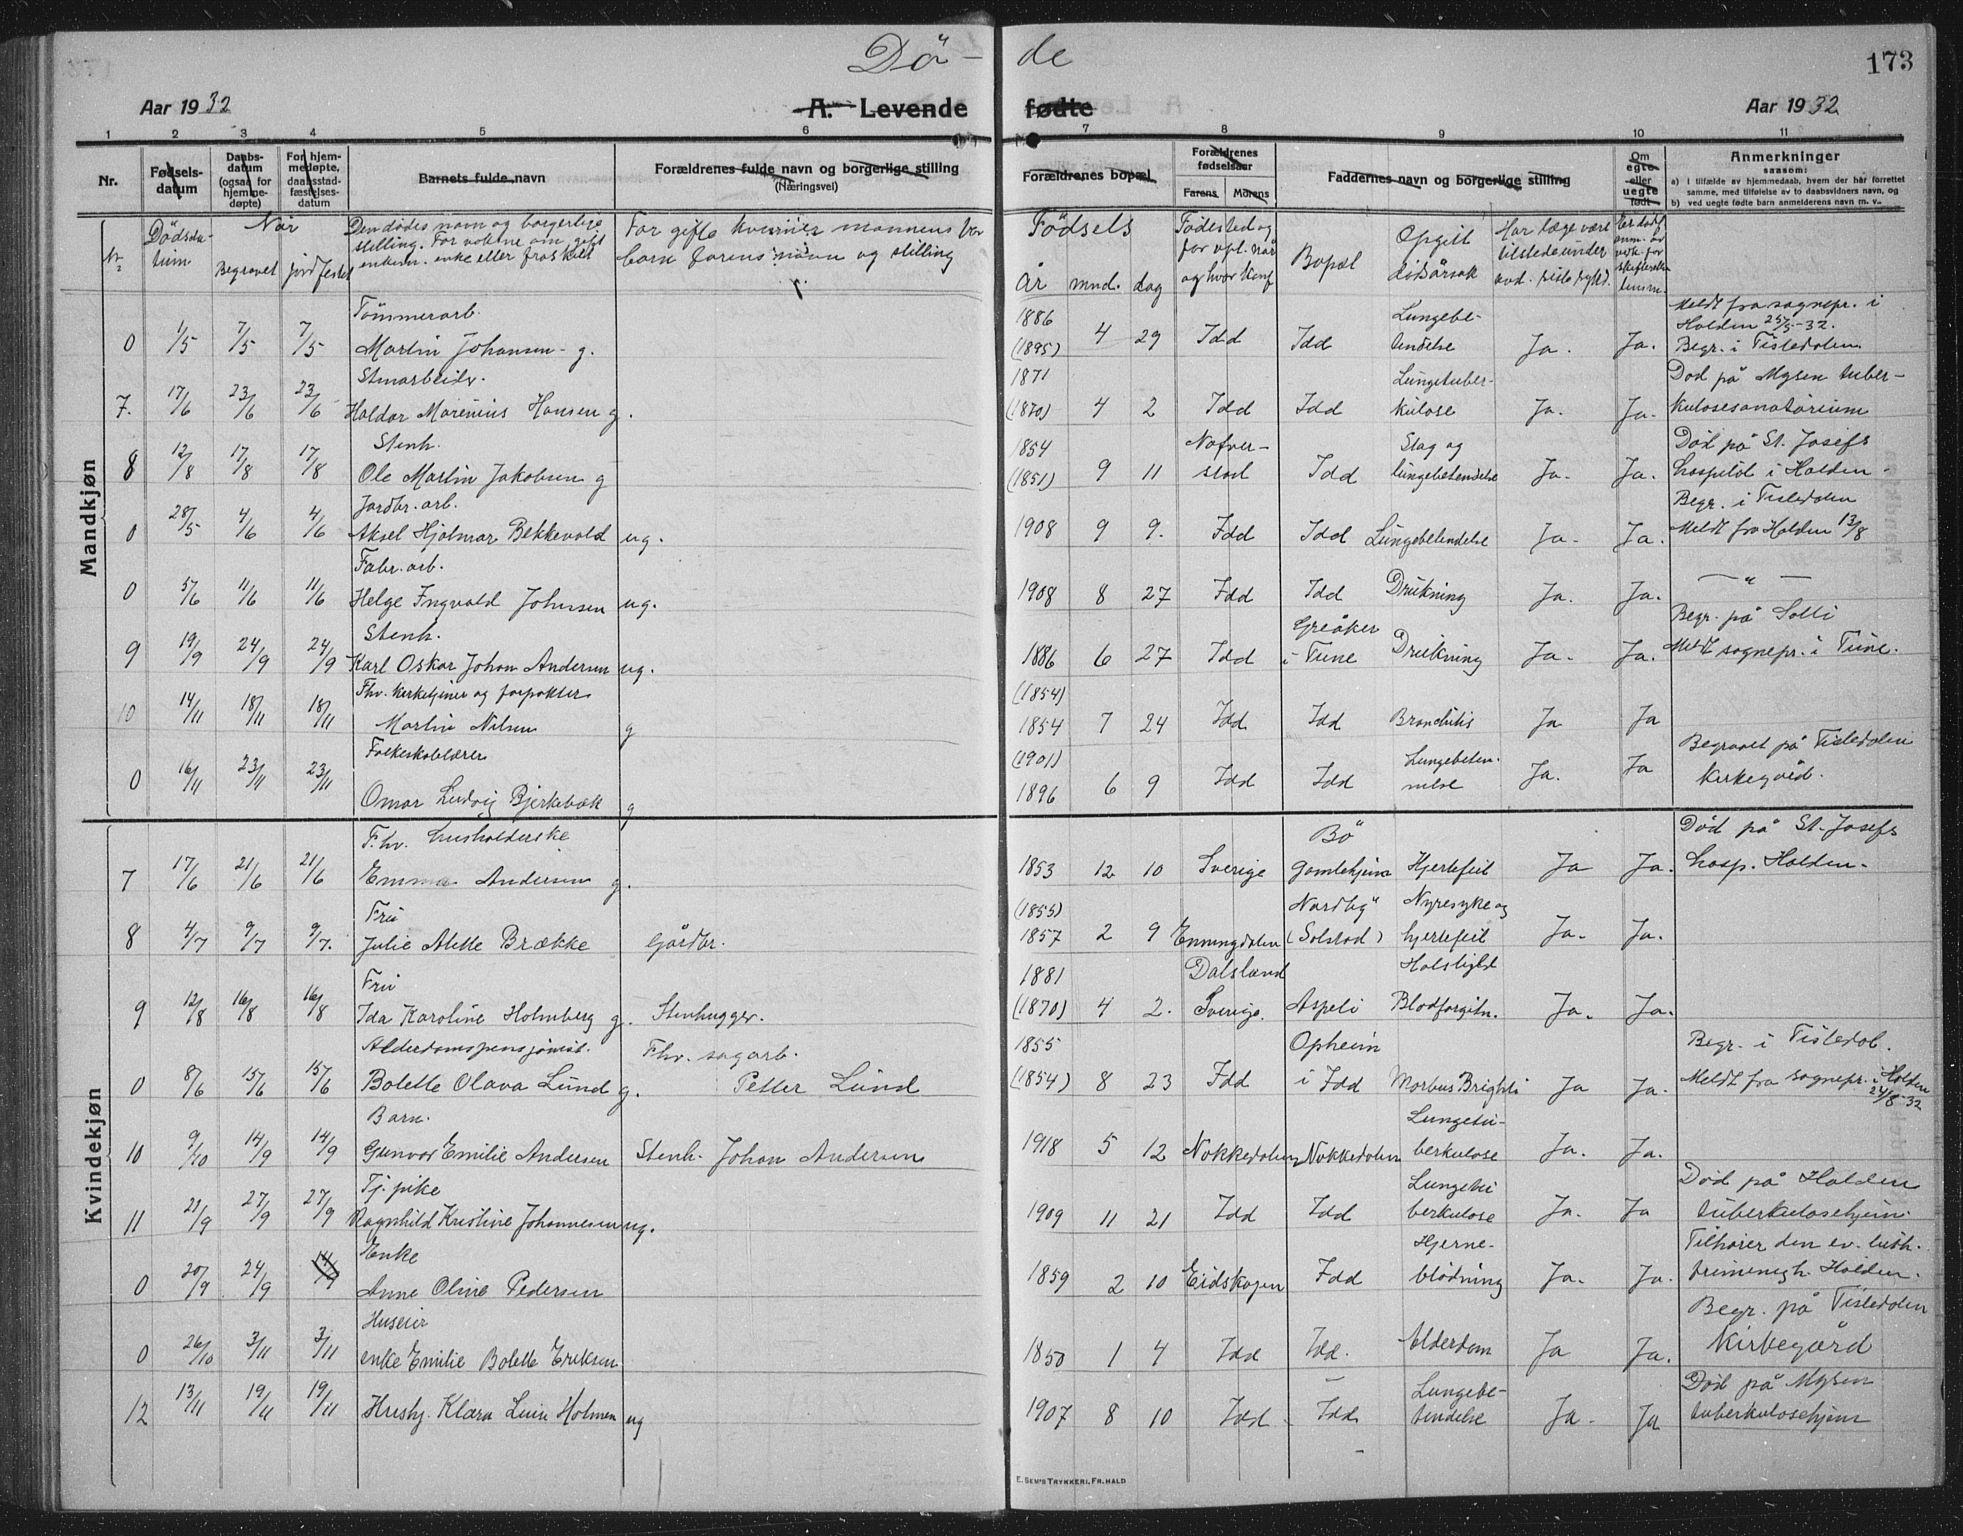 Dö - de
173
Aar 1932
A. Levende fødte
Aar 1932
1 2 3 4 5 6 7 8 9 10 11
Nr.
Fødsels-
datum
Daabs-
datum
(ogsaa for
hjemme-
døpte)
For hjem-
medøpte,
daabsstad-
fæstelses-
datum
Barnets fulde navn
Forældrenes fulde navn og borgerlige stilling
(Næringsvei)
Forældrenes bopæl
Forældrenes
fødselsaar
Farens Morens
Faddernes navn og borgerlige stilling
Om
egte
eller
uegte
født
Anmerkninger
saasom:
a) i tilfælde av hjemmedaab, hvem der har forrettet
samme, med tilføielse av to daabsvidners navn, og
b) ved uegte fødte barn anmelderens navn m. v.
Nr.
Dödsda-
tum
Når
Begravet jordfestet
Den dödes navn og borgerlige
stilling. For voksne om gift
enkem. enke eller fraskilt
For gifte kvinner mannens for
barn farens navn og stilling
Födsels
år mnd. dag
Födested og
for opl. når
og hvor konf.
Bopæl
Opgitt
dödsårsak
Har læge vært
tilstede under
avd. siste sykd.
Mandkjøn
0 1/5 7/5 7/5 Tömmerarb.
Martin Johansen - g.
1886
(1895) 4 29 Idd Idd Lungebe-
tendelse Ja. Ja.
Meldt fra sognepr. i
Halden 25/5-32.
Begr. i Tistedalen
7. 17/6 23/6 23/6 Stenarbeider.
Haldor Marenius Hansen g.
1871
(1870) 4 2 Idd Idd Lungetuber-
kulose Ja. Ja.
Död på Mysen tuber-
kulosesanatorium
8 12/8 17/8 17/8 Stenh.
Ole Martin Jakobsen g
1854
(1851) 9 11 Nafver-
stad Idd Slag og
lungebetendelse Ja. Ja.
Död på St. Josefs
hospital i Halden.
0 28/5 4/6 4/6 Jordbr. arb.
Aksel Hjalmar Bekkevold ug.
1908 9 9. Idd Idd Lungebetendelse Ja. Ja.
Begr. i Tistedalen
Meldt fra Halden 13/8
0 5/6 11/6 11/6 Fabr. arb.
Helge Ingvald Johnsen ug.
1908 8 27 Idd Idd Drukning Ja. Ja.
— " —
9 19/9 24/9 24/9 Stenh.
Karl Oskar Johan Andersen ug.
1886 6 27 Idd Greåker
i Tune Drukning Ja. Ja.
Begr. på Solli
Meldt sognepr. i Tune.
10 14/11 18/11 18/11 Fhv. kirketjener og forpakter
Martin Nilsen g
(1854)
1854 7 24 Idd Idd Bronchitis Ja Ja
0 16/11 23/11 23/11 Folkeskolelærer
Omar Ludvig Bjerkebæk g
(1901)
1896 6 9 Idd Idd Lungebeten-
nelse Ja. Ja
Begravet på Tistedalen
kirkegård.
Kvindekjøn
7 17/6 21/6 21/6 F.hv. husholderske
Emma Andersen g.
1853 12 10 Sverige Bö
gamlehjem Hjertefeil Ja Ja.
Död på St. Josefs
hosp. Halden.
8 4/7 9/7 9/7. Fru
Julie Alette Brække Gårdbr.
(1855)
1857 2 9 Enningdalen Nordby
(Solstad) Nyresyke og
hjertefeil Ja. Ja.
9 12/8 16/8 16/8 Fru
Ida Karoline Holmberg g. Stenhugger.
1881
(1870) 4 2. Dalsland
Sverige. Aspeli Halsbyld
Blodforgiftn. Ja. Ja.
0 8/6 15/6 15/6 Alderdomspensjonist.
Bolette Olava Lund g. Fhv. sagarb.
Petter Lund
1855
(1854) 8 23 Idd Opheim
i Idd Morbus Brighti Ja Ja.
Begr. i Tistedal.
Meldt fra sognepr. i Halden
24/8-32
10 9/10 14/9 14/9 Barn.
Gunvor Emilie Andersen Stenh. Johan Andersen
1918 5 12 Nokkedalen Nokkedalen Lungetu-
berkulose Ja. Ja.
11 21/9 27/9 27/9 Tj. pike
Ragnhild Kristine Johannesen ug.
1909 11 21 Idd Idd Lungetu
berkulose Ja. Ja
Död på Halden
tuberkulosehjem.
0 20/9 24/9 Enke
Anne Oline Pedersen
1859 2 10 Eidskogen Idd Hjerne-
blödning Ja. Ja.
Tilhører den ev. luth.
frimenigh. Halden.
0 26/10 3/11 3/11 Huseier
enke Emilie Bolette Eriksen
1850 1 4 Idd Idd. Alderdom Ja Ja.
Begr. på Tistedalen
Kirkegård
12 13/11 19/11 19/11 Hushj. Klara Holmen ug
1907 8 10 Idd. Idd. Lungebe-
tendelse Ja. Ja
Död på Mysen
tuberkulosehjem
E. SEM'S TRYKKERI, FR.HALD